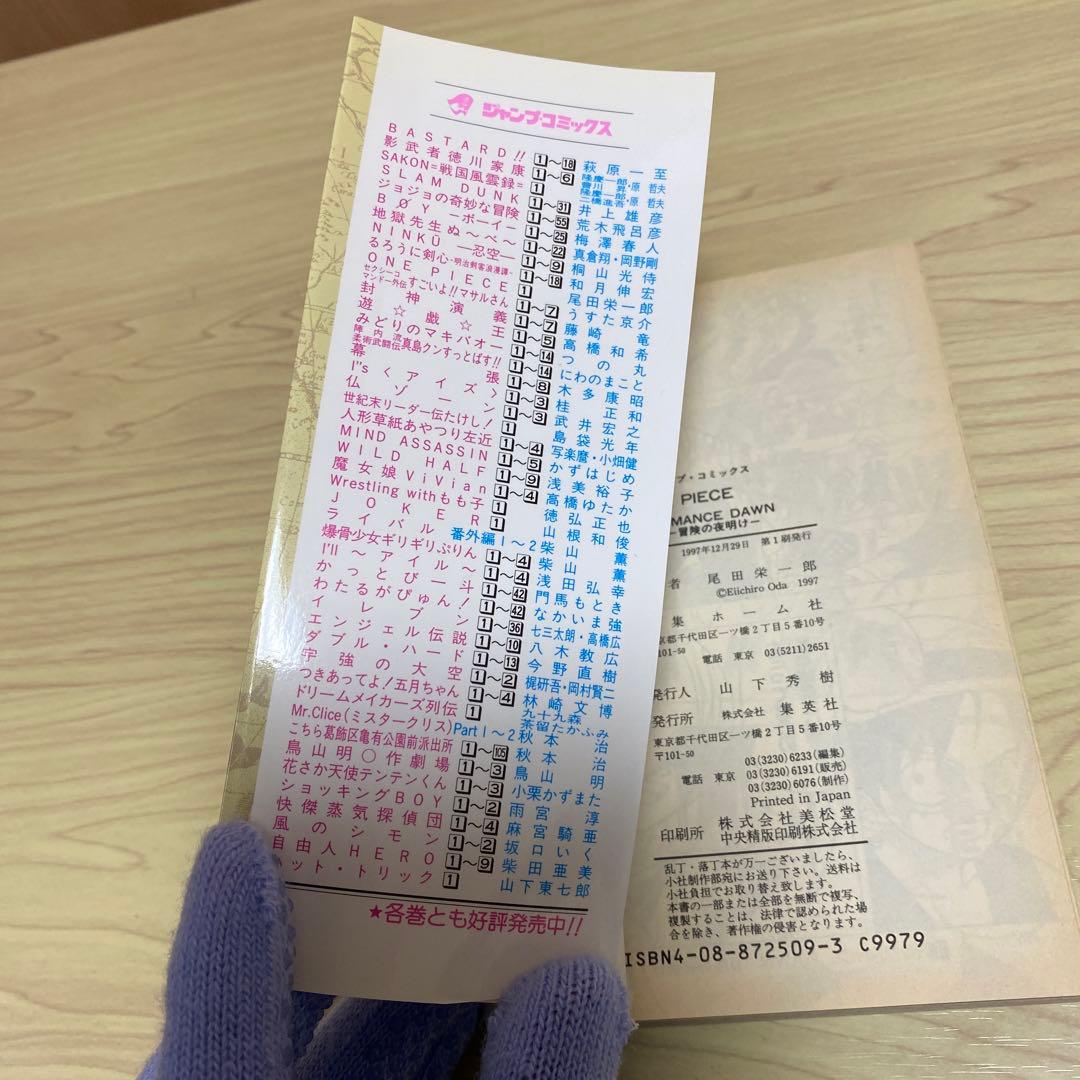 ジャンプ・コミックス
BASTARD!! 1〜18 萩原一至
影武者徳川家康 1〜6 隆慶一郎・原哲夫 會川昇
SAKON=戦国風雲録= 1 隆慶一郎・原哲夫 二橋進吾
SLAM DUNK 1〜31 井上雄彦
ジョジョの奇妙な冒険 1〜55 荒木飛呂彦
BØY —ボーイ— 1〜25 梅澤春人
地獄先生ぬ〜べ〜 1〜22 真倉翔・岡野剛
NINKŪ —忍空— 1〜9 桐山光侍
るろうに剣心-明治剣客浪漫譚- 1〜18 和月伸宏
ONE PIECE 1 尾田栄一郎
セクシーコマンドー外伝 すごいよ!!マサルさん 1〜7 うすた京介
封神演義 1〜7 藤崎竜
遊☆戯☆王 1〜5 高橋和希
みどりのマキバオー 1〜14 つの丸
陣内流柔術武闘伝 真島クンすっとばす!! 1〜14 にわのまこと
幕張 1〜8 木多康昭
I"s〈アイズ〉 1〜3 桂正和
仏ゾーン 1〜3 武井宏之
世紀末リーダー伝たけし! 1 島袋光年
人形草紙あやつり左近 1〜4 写楽麿・小畑健
MIND ASSASSIN 1〜5 かずはじめ
WILD HALF 1〜9 浅美裕子
魔女娘ViVian 1〜4 高橋ゆたか
Wrestling withもも子 1 徳弘正也
JOKER 1 山根和俊
ライバル 番外編1〜2 柴山薫
爆骨少女ギリギリぷりん 1〜4 柴山薫
I'll 〜アイル〜 1〜4 浅田弘幸
かっとび一斗 1〜42 門馬もとき
わたるがぴゅん! 1〜42 なかいま強
イレブン 1〜36 七三太朗・高橋広
エンジェル伝説 1〜10 八木教広
ダブル・ハード 1〜13 今野直樹
宇強の大空 1〜2 梶研吾・岡村賢二
つきあってよ!五月ちゃん 1〜4 林崎文博
ドリームメイカーズ列伝 1 九十九森 茶留たかふみ
Mr.Clice(ミスタークリス) Part 1〜2 秋本治
こちら葛飾区亀有公園前派出所 1〜105 秋本治
鳥山明〇作劇場 1〜3 鳥山明
花さか天使テンテンくん 1〜3 小栗かずまた
ショッキングBOY 1〜2 雨宮淳
快傑蒸気探偵団 1〜4 麻宮騎亜
風のシモン 1〜2 坂口いく
自由人HERO 1〜9 柴田亜美
ハット・トリック 1 山下東七郎
★各巻とも好評発売中!!
プ・コミックス
PIECE
MANCE DAWN
—冒険の夜明け—
1997年12月29日 第1刷発行
者 尾田栄一郎
©Eiichiro Oda 1997
集 ホーム社
京都千代田区一ツ橋2丁目5番10号
101-50 電話 東京 03(5211)2651
発行人 山下秀樹
発行所 株式会社 集英社
東京都千代田区一ツ橋2丁目5番10号
〒101-50
03(3230)6233(編集)
電話 東京 03(3230)6191(販売)
03(3230)6076(制作)
Printed in Japan
印刷所 株式会社美松堂
中央精版印刷株式会社
乱丁・落丁本が万一ございましたら、
小社制作部宛にお送り下さい。送料は
小社負担でお取り替え致します。
本書の一部または全部を無断で複写、
複製することは、法律で認められた場
合を除き、著作権の侵害となります。
ISBN4-08-872509-3 C9979